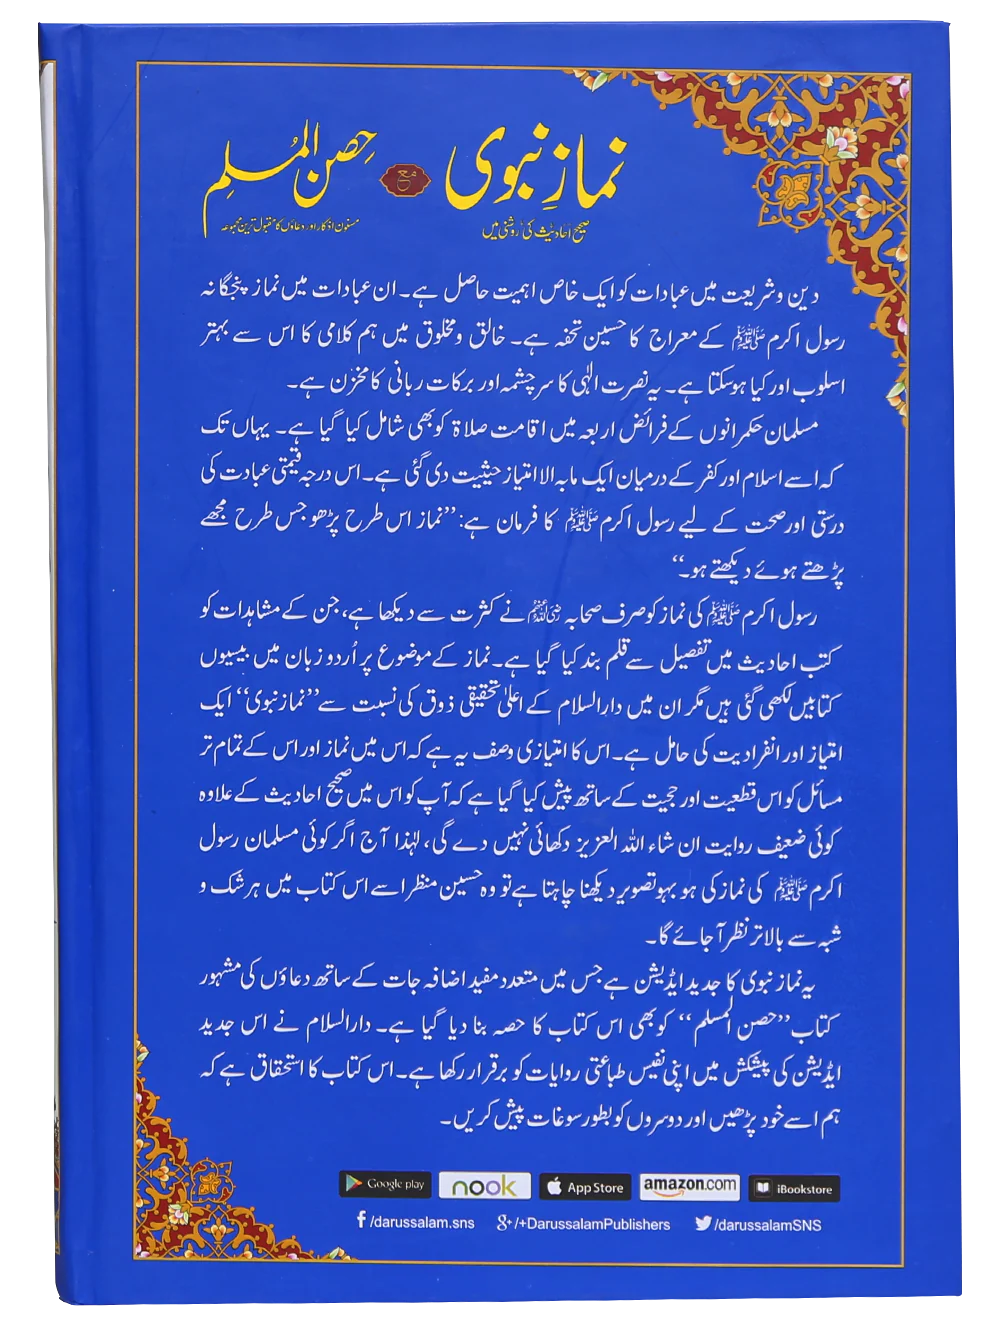 نمازِ نبوی مع حِصن المُسلِم
صحیح احادیث کی روشنی میں
مسنون اذکار اور دعاؤں کا مقبول ترین مجموعہ
دین و شریعت میں عبادات کو ایک خاص اہمیت حاصل ہے۔ ان عبادات میں نماز پنجگانہ
رسول اکرم ﷺ کے معراج کا حسین تحفہ ہے۔ خالق و مخلوق میں ہم کلامی کا اس سے بہتر
اسلوب اور کیا ہوسکتا ہے۔ یہ نصرت الٰہی کا سرچشمہ اور برکات ربانی کا مخزن ہے۔
مسلمان حکمرانوں کے فرائض اربعہ میں اقامت صلاۃ کو بھی شامل کیا گیا ہے۔ یہاں تک
کہ اسے اسلام اور کفر کے درمیان ایک مابہ الامتیاز حیثیت دی گئی ہے۔ اس درجہ قیمتی عبادت کی
درستی اور صحت کے لیے رسول اکرم ﷺ کا فرمان ہے: ’’نماز اس طرح پڑھو جس طرح مجھے
پڑھتے ہوئے دیکھتے ہو۔‘‘
رسول اکرم ﷺ کی نماز کو صرف صحابہ رضی اللہ عنہم نے کثرت سے دیکھا ہے، جن کے مشاہدات کو
کتب احادیث میں تفصیل سے قلم بند کیا گیا ہے۔ نماز کے موضوع پر اُردو زبان میں بیسیوں
کتابیں لکھی گئی ہیں مگر ان میں دارالسلام کے اعلیٰ تحقیقی ذوق کی نسبت سے ’’نماز نبوی‘‘ ایک
امتیاز اور انفرادیت کی حامل ہے۔ اس کا امتیازی وصف یہ ہے کہ اس میں نماز اور اس کے تمام تر
مسائل کو اس قطعیت اور حجیت کے ساتھ پیش کیا گیا ہے کہ آپ کو اس میں صحیح احادیث کے علاوہ
کوئی ضعیف روایت ان شاء اللہ العزیز دکھائی نہیں دے گی، لہٰذا آج اگر کوئی مسلمان رسول
اکرم ﷺ کی نماز کی ہو بہو تصویر دیکھنا چاہتا ہے تو وہ حسین منظر اسے اس کتاب میں ہر شک و
شبہ سے بالاتر نظر آجائے گا۔
یہ نماز نبوی کا جدید ایڈیشن ہے جس میں متعدد مفید اضافہ جات کے ساتھ دعاؤں کی مشہور
کتاب ’’حصن المسلم‘‘ کو بھی اس کتاب کا حصہ بنا دیا گیا ہے۔ دارالسلام نے اس جدید
ایڈیشن کی پیشکش میں اپنی نفیس طباعتی روایات کو برقرار رکھا ہے۔ اس کتاب کا استحقاق ہے کہ
ہم اسے خود پڑھیں اور دوسروں کو بطور سوغات پیش کریں۔
Google play nook App Store amazon.com iBookstore
/darussalam.sns /+DarussalamPublishers /darussalamSNS